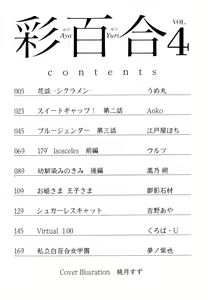 彩百合
Aya Yuri
VOL.
4
contents
005 花談 -シクラメン- うめ丸
023 スイートギャップ! 第二話 Aoko
045 ブルージェンダー 第三話 江戸屋ぽち
069 179° Isosceles 前編 ウルツ
089 幼馴染みのきみ 後編 滝乃絹
109 お姫さま 王子さま 御影石材
129 シュガーレスキャット 吉野あや
145 Virtual 1:00 くろば・U
169 私立白百合女学園 夢ノ紫也
Cover Illusration 桃月すず